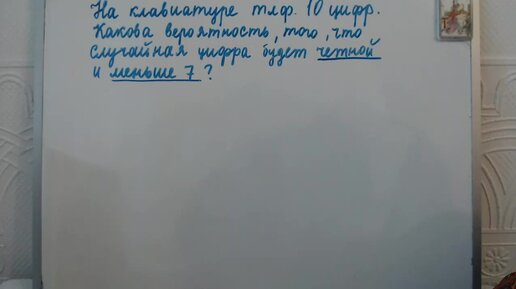 На клавиатуре тлф. 10 цифр.
Какова вероятность, того, что
случайная цифра будет четной
и меньше 7?